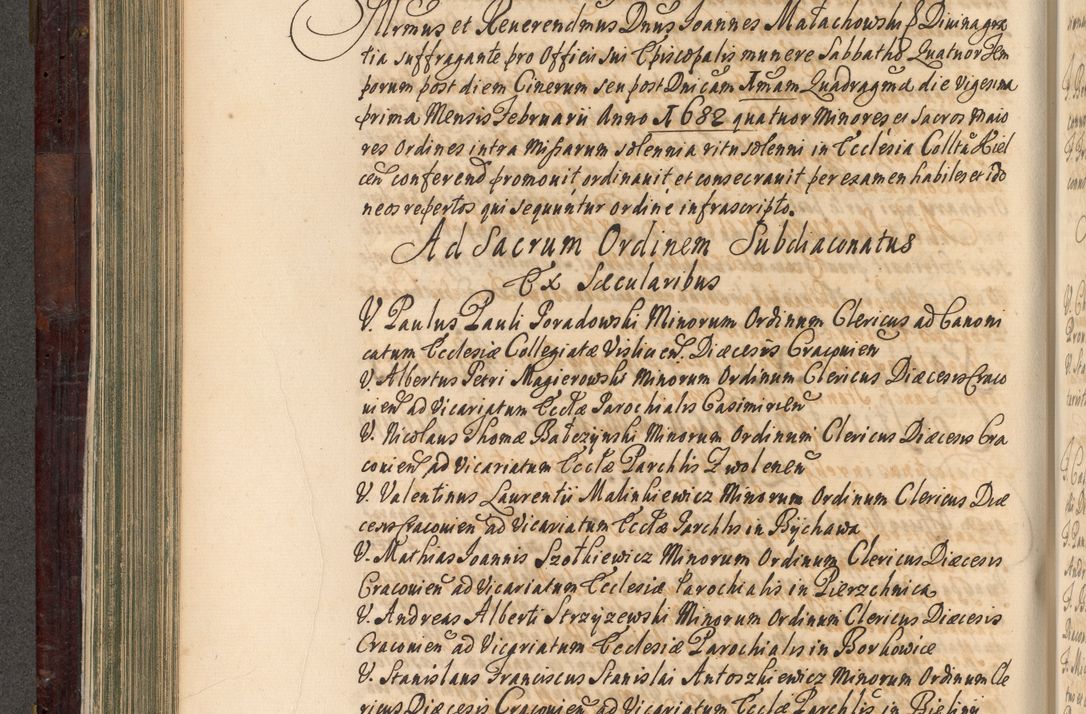 Illrmus et Reverendmus Dnus Joannes Małachowski &c Divina gra
tia suffragante pro Officii sui Episcopalis munere Sabbatho Quatuor Tem
porum post diem Cinerum seu post Dnicam Imam Quadragmæ die vigesima
prima Mensis Februarii Anno 1682 quatuor Minores et Sacros Maio
res Ordines intra Missarum solennia ritu solenni in Ecclesia Colltâ Kiel
cen conferend promovit ordinavit et consecravit per examen habiles et ido
neos repertos qui sequuntur ordine infrascripto.
Ad Sacrum Ordinem Subdiaconatus
Ex Sæcularibus
V. Paulus Pauli Poradowski Minorum Ordinum Clericus ad Canoni
catum Ecclesiæ Collegiatæ Vislicen. Diæcesis Cracovien
V. Albertus Petri Magierowski Minorum Ordinum Clericus Diæcesis Craco
vien ad Vicariatum Ecclæ Parochialis Casimirien
V. Nicolaus Thomæ Bałczynski Minorum Ordinum Clericus Diæcesis Cra
covien ad Vicariatum Ecclæ Parchlis Zwolenen
V. Valentinus Laurentii Malinkiewicz Minorum Ordinum Clericus Diæ
cesis Cracovien ad Vicariatum Ecclæ Parchlis in Bychawa
V. Mathias Joannis Szotkiewicz Minorum Ordinum Clericus Diæcesis
Cracovien ad Vicariatum Ecclesiæ Parochialis in Pierzchnica
V. Andreas Alberti Strzyzewski Minorum Ordinum Clericus Diæcesis
Cracovien ad Vicariatum Ecclesiæ Parochialis in Borkowice
V. Stanislaus Franciscus Stanislai Antoszkiewicz Minorum Ordinum Cle
ricus Diæcesis Cracovien ad Vicariatum Ecclæ Parchlis in Bieliny